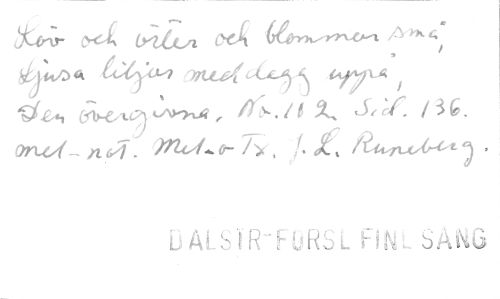 Löv och örter och blommor små,
Ljusa liljor med dagg uppå,
Den övergivna, No. 102 Sid. 136.
mel-not. Mel. o Tx. J. L. Runeberg.
DALSTR-FORSL FINL SANG